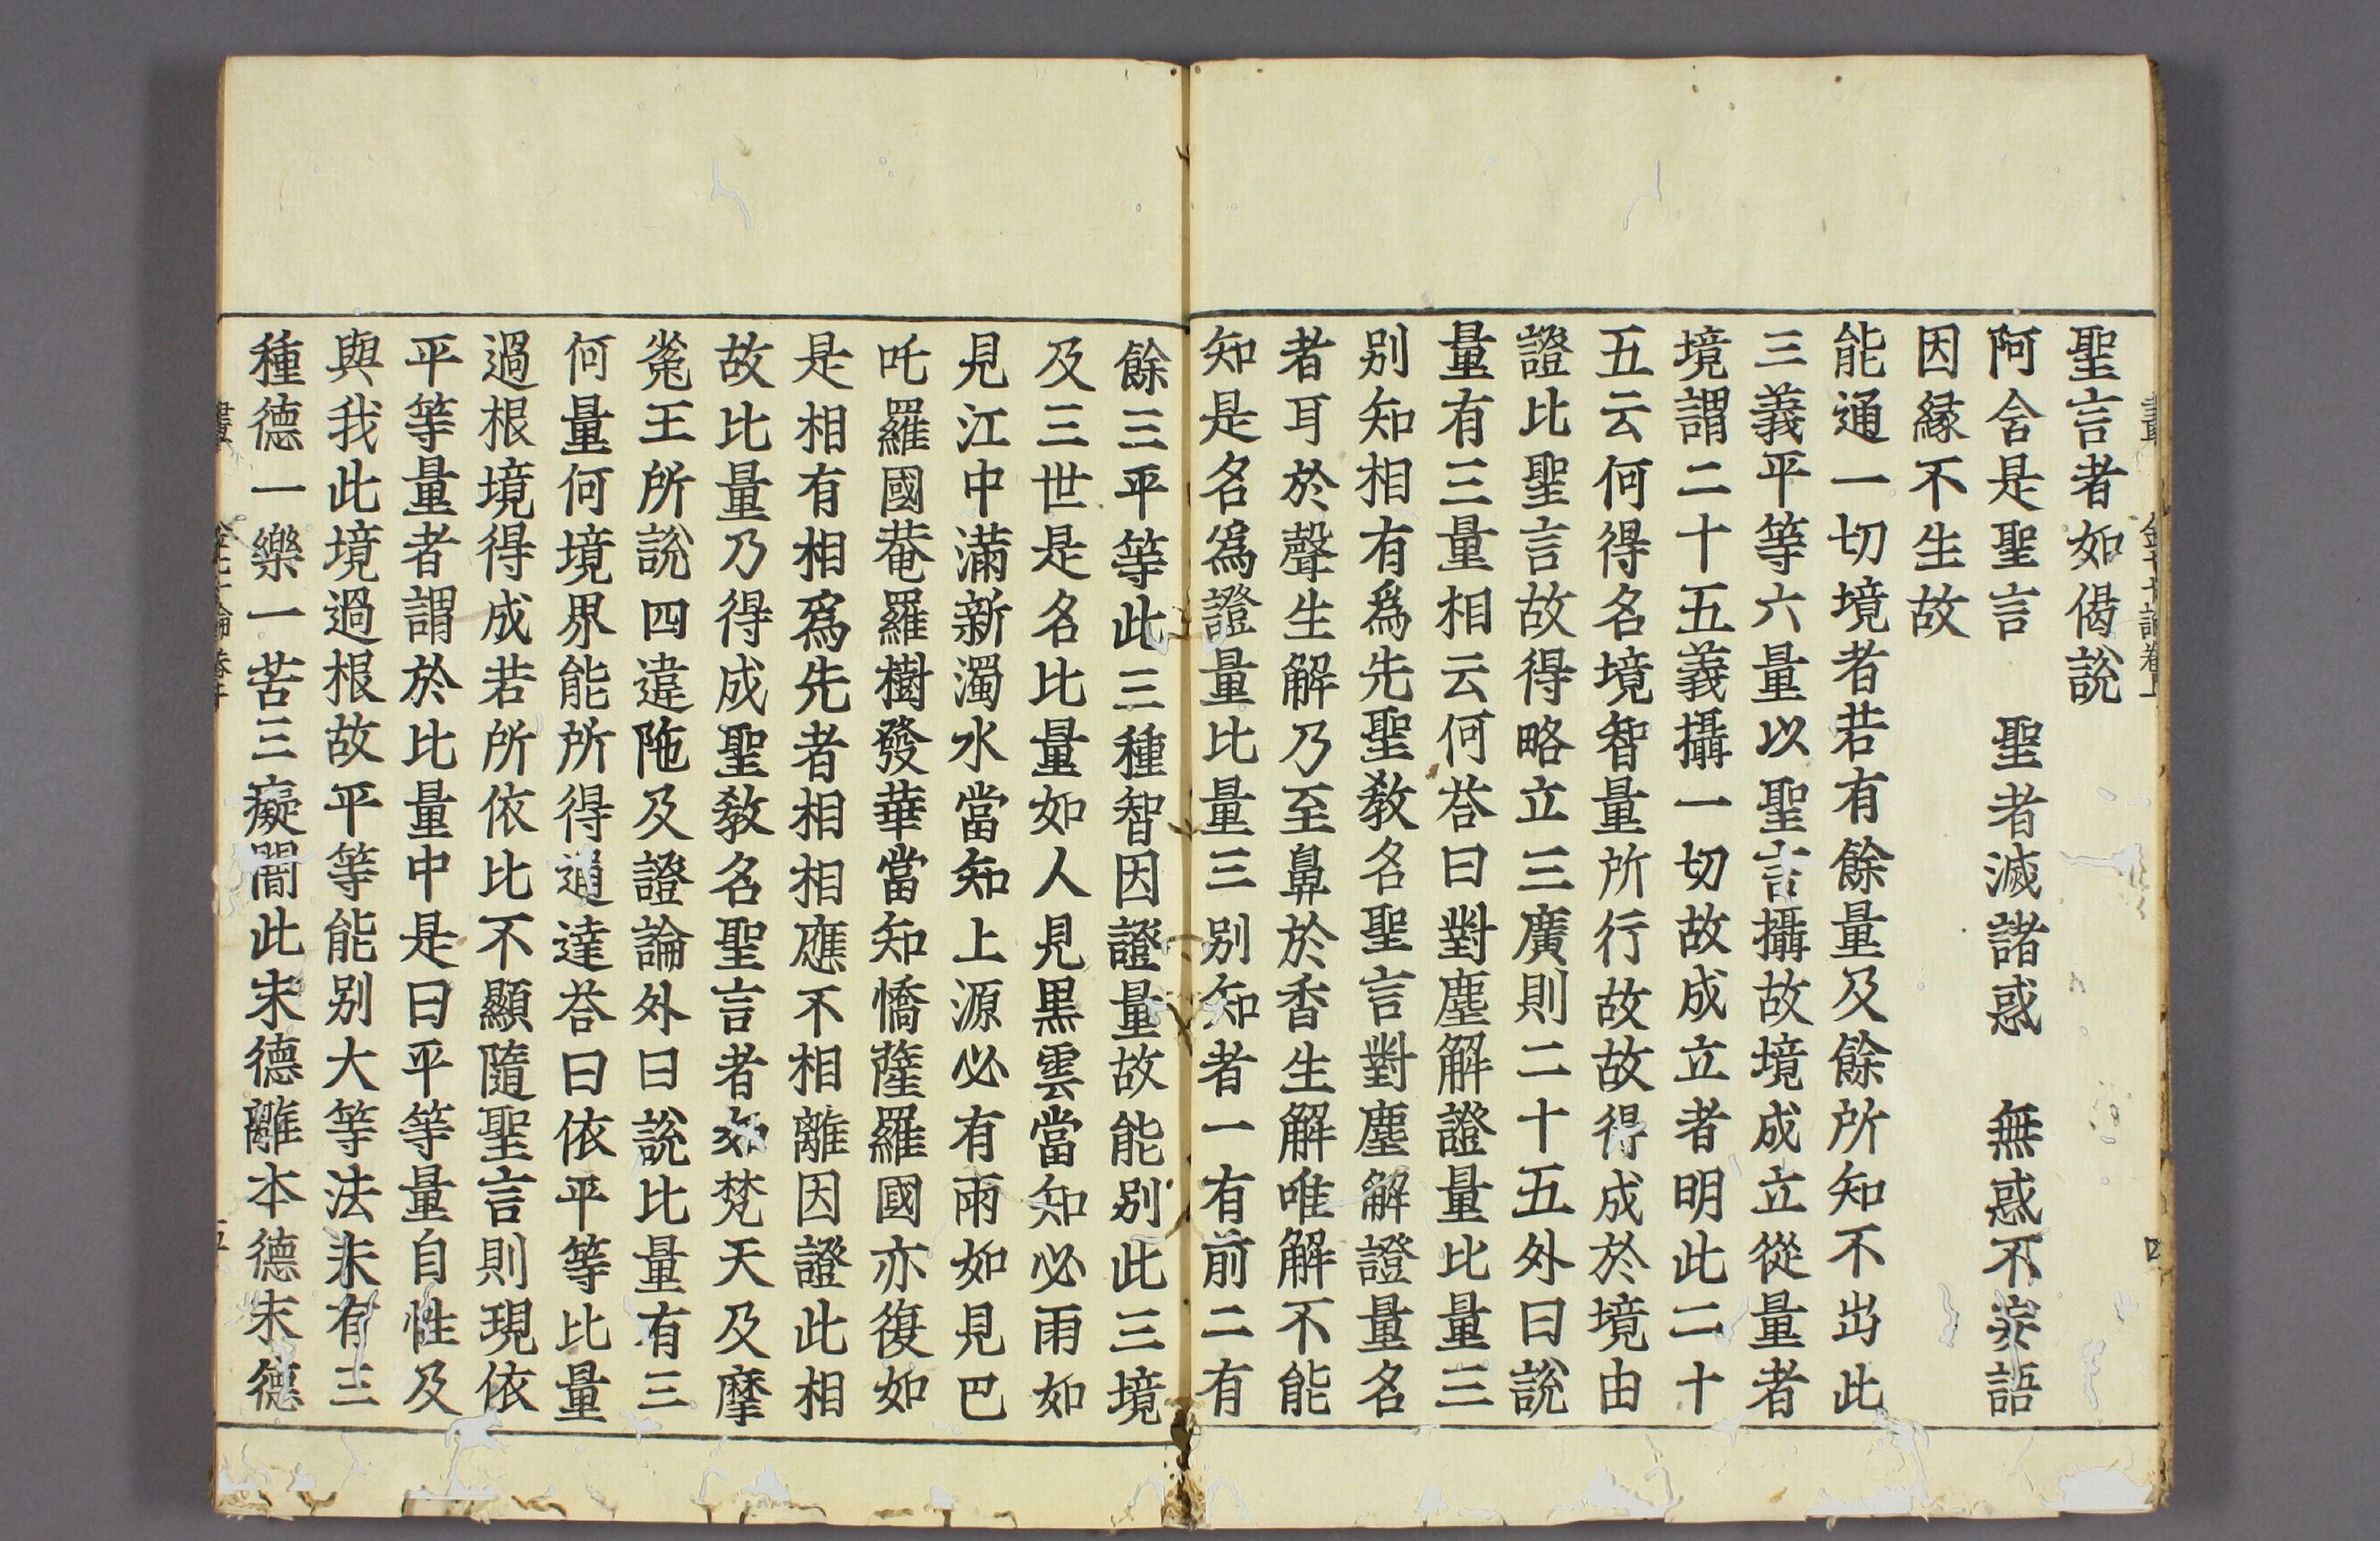 聖言者如偈說
阿舍是聖言 聖者滅諸惑 無惑不妄語
因緣不生故
能通一切境者若有餘量及餘所知不出此
三義平等六量以聖言攝故境成立從量者
境謂二十五義攝一切故成立者明此二十
五云何得名境智量所行故故得成於境由
證比聖言故得略立三廣則二十五外曰說
量有三量相云何荅曰對塵解證量比量三
別知相有爲先聖教名聖言對塵解證量名
者耳於聲生解乃至鼻於香生解唯解不能
知是名爲證量比量三別知者一有前二有
餘三平等此三種智因證量故能別此三境
及三世是名比量如人見黑雲當知必雨如
見江中滿新濁水當知上源必有雨如見巴
吒羅國菴羅樹發華當知憍薩羅國亦復如
是相有相爲先者相相應不相離因證此相
故比量乃得成聖教名聖言者如梵天及摩
㝹王所說四違陁及證論外曰說比量有三
何量何境界能所得通達荅曰依平等比量
過根境得成若所依比不顯隨聖言則現依
平等量者謂於比量中是曰平等量自性及
與我此境過根故平等能別大等法末有三
種德一樂一苦三癡闇此末德離本德末德
金七十論卷上
四